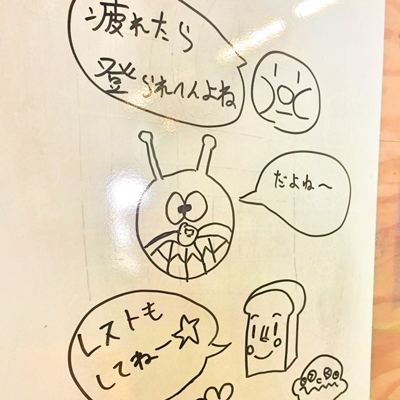 疲れたら
登られへんよね
だよね〜
レストも
してねー☆